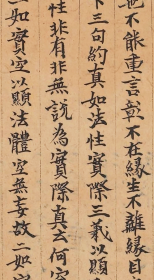 也不能重言豈不在縁生不離縁自
下三句約真如法性實際三義以顯
性非有非無説為實際真云何空
如實空以顯法體空無妄故二如實